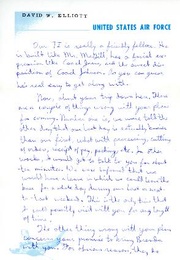 DAVID W. ELLIOTT
UNITED STATES AIR FORCE
Our TI is really a friendly fellow. He
is built like Mr. McGill, has a facial ex-
pression like Coach Jones, and the sweet dis-
position of Coach Johnson. So you can guess
he's real easy to get along with.
Now, about your trip down here, there
are a couple of things wrong with your plans
for coming. Number one is, we were told the
other day that our last day is actually busier
than our first what with processing, cutting
of orders, receipt of pay, packing, etc. In other
words, I would get to talk to you for about
ten minutes. We were informed that we
would have a leave in which we could leave the
base for a whole day during our last or next-
to-last weekend. This is the only time that
I could possibly visit with you for any length
of time.
The other thing wrong with your plan
concerns your promise to bring Brenda
with you. For obvious reasons, they do